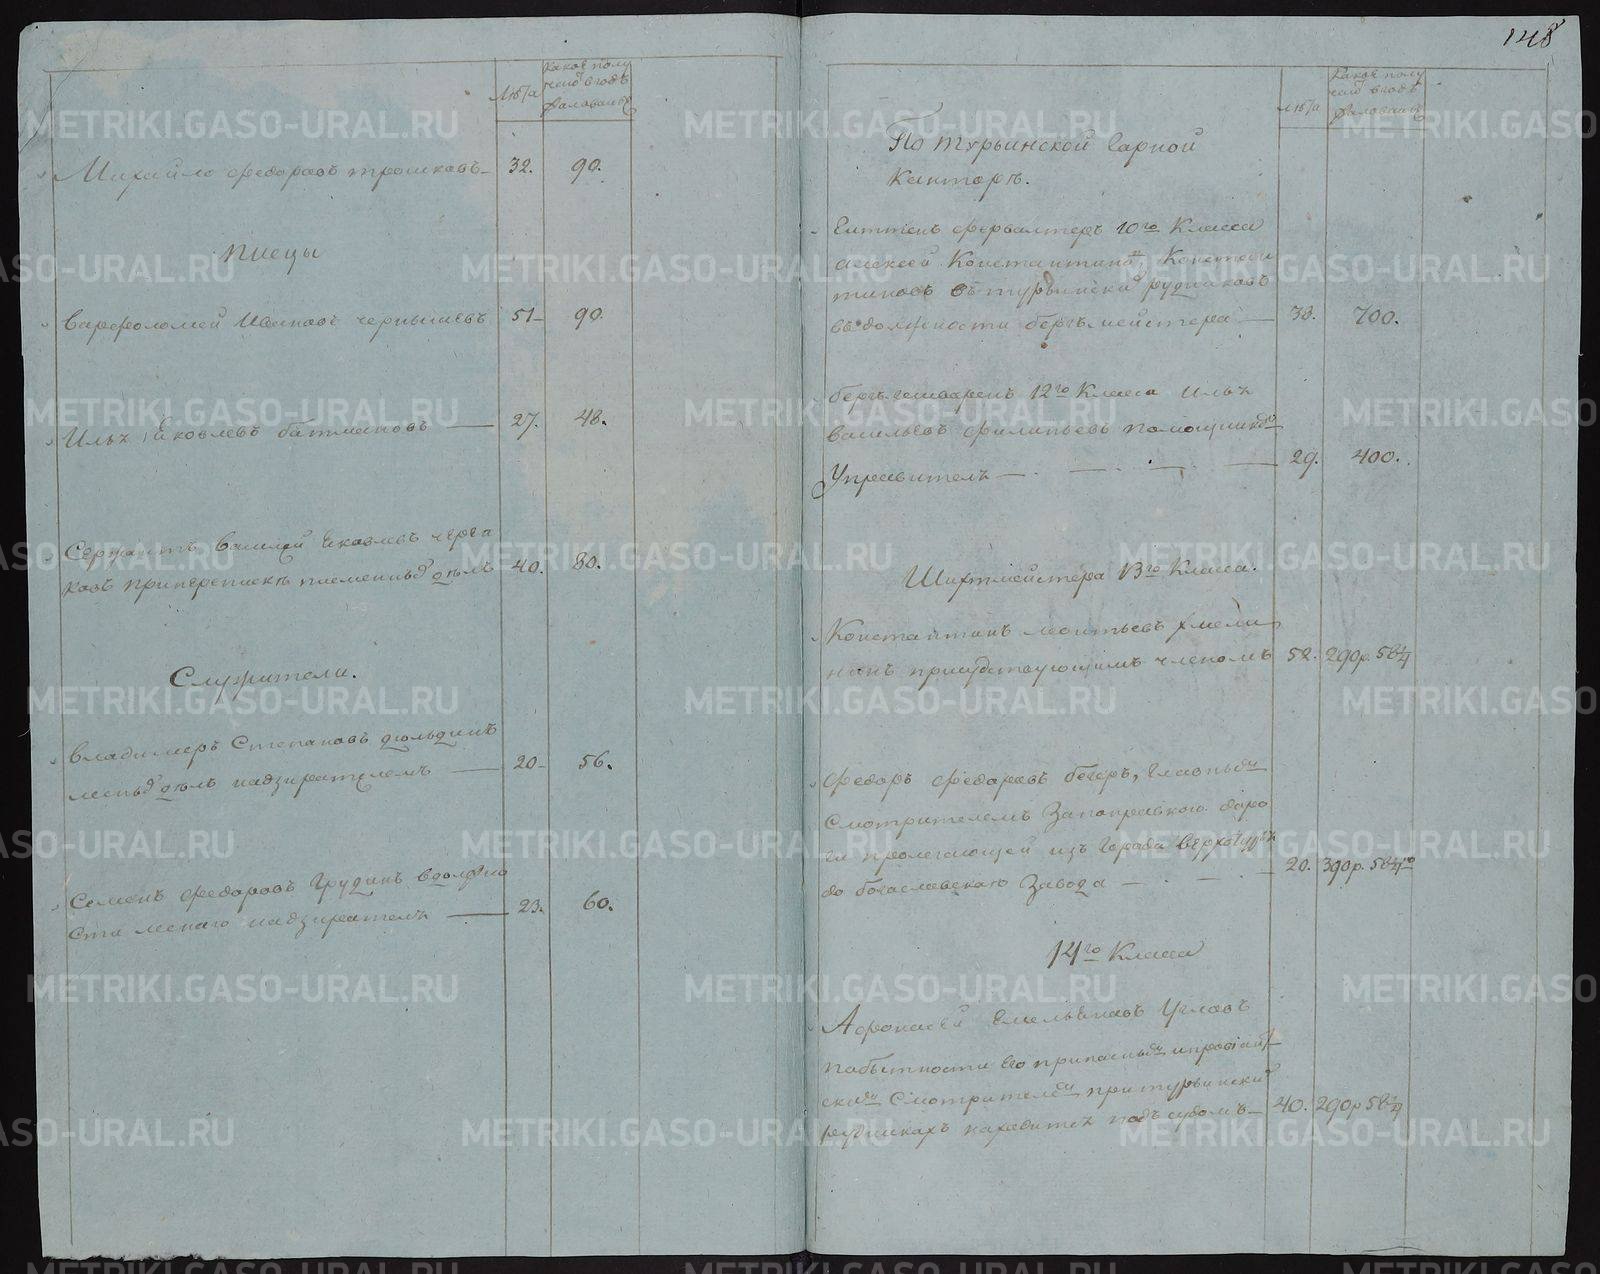 Лѣта
Какое полу
чаютъ въ годъ
жалованья
Михайло Федоровъ
32. 90.
писцы
Варфоломей Ивановъ Чернышевъ 51 90
Илья Яковлевъ Батмановъ 27. 48.
Сержантъ Василей Яковлевъ
при переписке писменныхъ дѣлъ 40. 80.
Служители.
Владимеръ Степановъ
лесныхъ дѣлъ надзирателемъ 20 56.
Семенъ Федоровъ Грудинъ в должно
сти леснаго надзирателя 23. 60.
148
Лѣта
Какое полу
чаютъ въ годъ
жалованья
По турьинской Горной
Канторѣ.
10го Класса
Алексей Константиновъ Констан
тиновъ въ турьинскихъ рудникахъ
въ должности бергъмейстера 38. 700.
бергъгешваренъ 12го Класса Илья
Васильевъ Филипьевъ помощникомъ
Управителя 29. 400.
Шихтмейстера 13го Класса.
Константинъ Леонтьевъ
присудствующимъ членомъ 52. 290р. 58¼
Федоръ Федоровъ Бегеръ, главнымъ
Смотрителемъ Заопаевскою доро
ги пролегающей изъ Города Верхотурья
до богословскаго Завода 20. 390р. 58¼го
14го Класса
Афонасей Емельяновъ Угловъ
побытности его припаснымъ и провиант
скимъ Смотрителемъ при турьинскихъ
рудникахъ находится подъ судомъ 40. 290р 58¼
METRIKI.GASO-URAL.RU